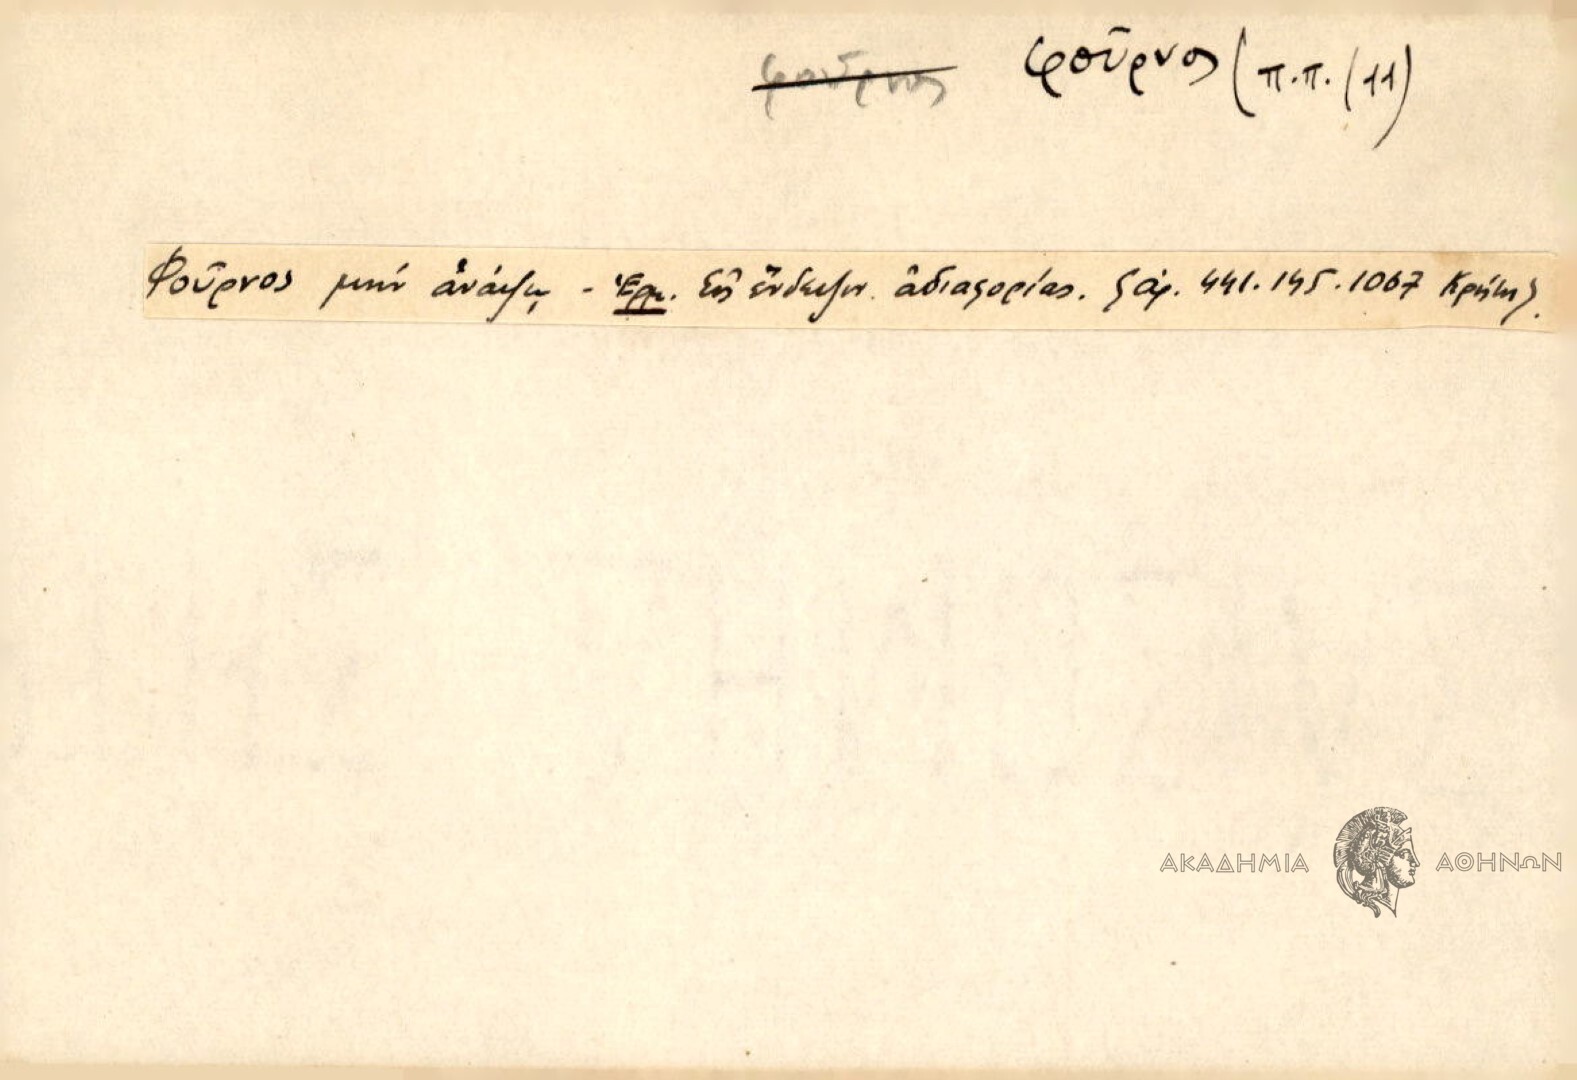 φοῦρνος φοῦρνος (π.π. (11)
Φοῦρνος μήν ἀνάψῃ - Ἑρμ. Εἰς ἔνδειξιν ἀδιαφορίας. ἀρ. 441. 145. 1067 Κρήτης.
ΑΚΑΔΗΜΙΑ ΑΘΗΝΩΝ